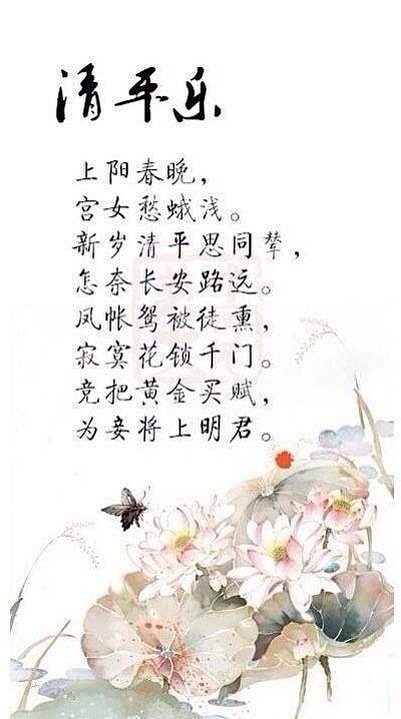 清平乐
上阳春晚，
宫女愁蛾浅。
新岁清平思同辇，
怎奈长安路远。
凤帐鸳被徒熏，
寂寞花锁千门。
竞把黄金买赋，
为妾将上明君。